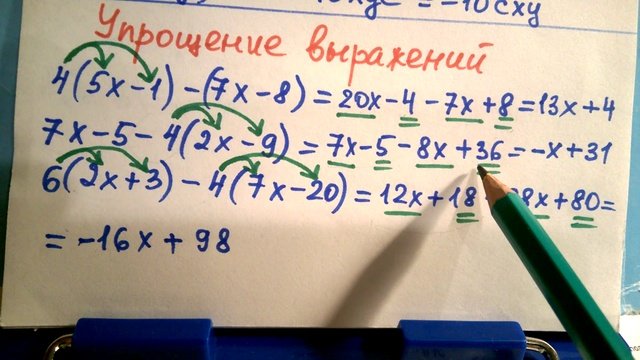 = -10cxy
Упрощение выражений
4(5x-1)-(7x-8)=20x-4-7x+8=13x+4
7x-5-4(2x-9)=7x-5-8x+36=-x+31
6(2x+3)-4(7x-20)=12x+18 8x+80=
=-16x+98